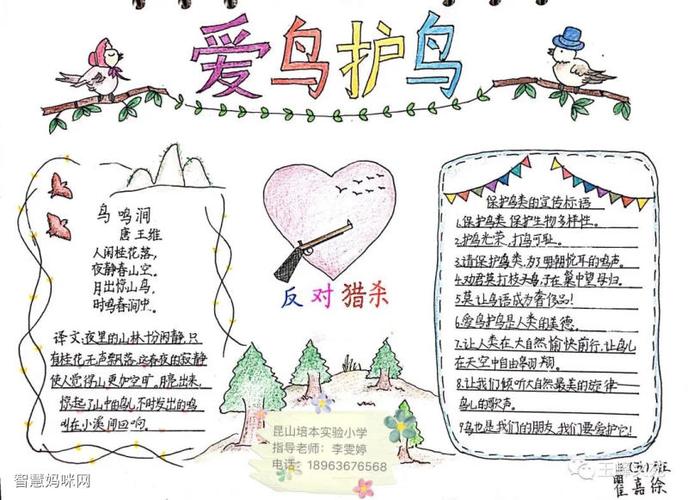 爱鸟护鸟
鸟鸣涧
唐王维
人闲桂花落,
夜静春山空。
月出惊山鸟,
时鸣春涧中。
译文:夜里的山林十分闲静,只
有桂花无声飘落,这春夜的寂静
使人觉得山更加空旷。月亮出来,
惊起了山中的鸟儿,不时发出的鸣
叫在小溪间回响。
反对猎杀
保护鸟类的宣传标语
1.保护鸟类 保护生物多样性。
2.护鸟光荣,打鸟可耻。
3.请保护鸟类,为了明朝悦耳的鸣声。
4.劝君莫打枝头鸟,子在巢中望母归。
5.莫让鸟语成为奢侈品!
6.爱鸟护鸟是人类的美德。
7.让人类在大自然愉快前行,让鸟儿
在天空中自由翱翔。
8.让我们倾听大自然最美的旋律
鸟儿的歌声。
9.鸟也是我们的朋友,我们要爱护它!
昆山培本实验小学
指导老师:李雯婷
电话:18963676568
班
瞿嘉徐
智慧妈咪网